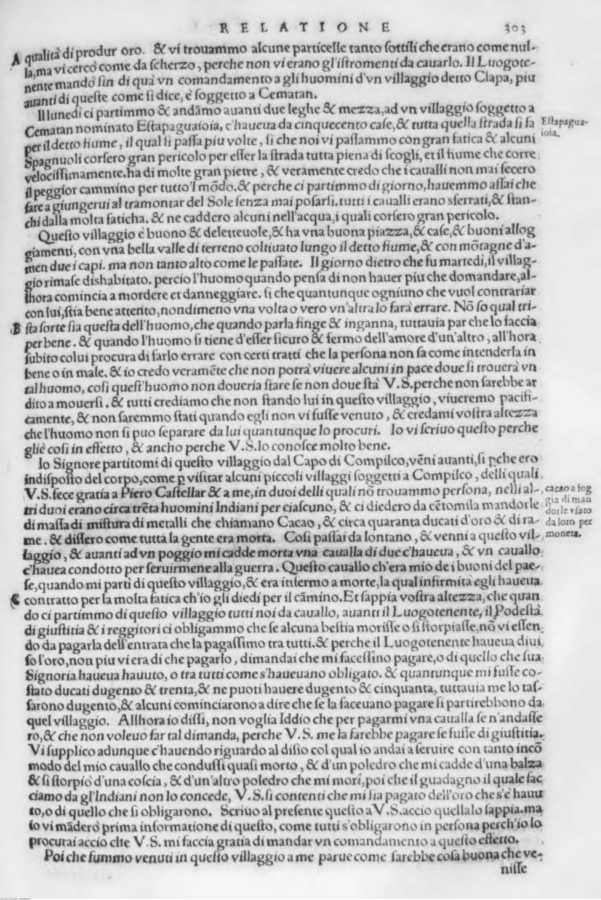 RELATIONE 303
A qualità di produr oro. & vi trouammo alcune particelle tanto sottili che erano come nul-
la, ma vi cercò come da scherzo, perche non vi erano gl'istromenti da cauarlo. Il Luogote-
nente mandò sin di quà vn comandamento a gli huomini d'vn villaggio detto Clapa, piu
auanti di queste come si dice, è soggetto a Cematan.
Il lunedi ci partimmo & andāmo auanti due leghe & mezza, ad vn villaggio soggetto a
Cematan nominato Estapaguaioia, c'haueua da cinquecento case, & tutta quella strada si fa
Estapagua-
ioia.
per il detto fiume, il qual si passa piu volte, si che noi vi passammo con gran fatica & alcuni
Spagnuoli corsero gran pericolo per esser la strada tutta piena di scogli, et il fiume che corre
velocissimamente. ha di molte gran pietre, & veramente credo che i caualli non mai fecero
il peggior cammino per tutto'l mōdo. & perche ci partimmo di giorno, hauemmo assai che
fare a giungerui al tramontar del Sole senza mai posarsi. tutti i caualli erano sferrati, & stan-
chi dalla molta faticha. & ne caddero alcuni nell'acqua, i quali corsero gran pericolo.
Questo villaggio è buono & deletteuole, & ha vna buona piazza, & case, & buoni allog
giamenti, con vna bella valle di terreno coltiuato lungo il detto fiume, & con mōtagne d'a-
men due i capi. ma non tanto alto come le passate. Il giorno dietro che fu martedi, il villag-
gio rimase dishabitato. percio l'huomo quando pensa di non hauer piu che domandare, al-
lhora comincia a mordere et danneggiare. si che quantunque ogniuno che vuol contrariar
con lui, stia bene attento, nondimeno vna volta o vero vn'altra lo farà errare. Nō so qual tri-
B sta sorte sia questa dell'huomo, che quando parla finge & inganna, tuttauia par che lo faccia
per bene. & quando l'huomo si tiene d'esser sicuro & fermo dell'amore d'un'altro, all'hora
subito colui procura di farlo errare con certi tratti che la persona non sa come intenderla in
bene o in male. & io credo veramēte che non potrà viuere alcuni in pace doue si trouerà vn
tal huomo, cosi quest'huomo non doueria stare se non doue stà V.S. perche non sarebbe ar
dito a mouersi. & tutti crediamo che non stando lui in questo villaggio, viueremo pacifi-
camente, & non saremmo stati quando egli non vi fusse venuto, & credami vostra altezza
che l'huomo non si puo separare da lui quantunque lo procuri. Io vi scriuo questo perche
gliè cosi in effetto, & ancho perche V.S. lo conosce molto bene.
Io Signore partitomi di questo villaggio dal Capo di Compilco, vēni auanti, si pche ero
indisposto del corpo, come p visitar alcuni piccoli villaggi soggetti a Compilco, delli quali
V.S. fece gratia a Piero Castellar & a me, in duoi delli quali nō trouammo persona, nelli al-
cacao a fog
gia di man
dorle vsato
da loro per
moneta.
tri duoi erano circa trēta huomini Indiani per ciascuno, & ci diedero da cētomila mandorle
di massa di mistura di metalli che chiamano Cacao, & circa quaranta ducati d'oro & di ra-
me. & dissero come tutta la gente era morta. Cosi passai da lontano, & venni a questo vil-
laggio, & auanti ad vn poggio mi cadde morta vna caualla di due c'haueua, & vn cauallo
c'hauea condotto per seruirmene alla guerra. Questo cauallo ch'era mio de i buoni del pae-
se, quando mi parti di questo villaggio, & era infermo a morte, la qual infirmità egli haueua
C contratto per la molta fatica ch'io gli diedi per il cāmino. Et sappia vostra altezza, che quan
do ci partimmo di questo villaggio tutti noi da cauallo, auanti il Luogotenente, il Podestà
di giustitia & i reggitori ci obligammo che se alcuna bestia morisse o si storpiasse, nō vi essen-
do da pagarla dell'entrata che la pagassimo tra tutti. & perche il Luogotenente haueua diui,
so l'oro, non piu vi era di che pagarlo, dimandai che mi facessino pagare, o di quello che sua
Signoria haueua hauuto, o tra tutti come s'haueuano obligato. & quantunque mi fusse co-
stato ducati dugento & trenta, & ne puoti hauere dugento & cinquanta, tuttauia me lo tas-
sarono dugento, & alcuni cominciarono a dire che se la faceuano pagare si partirebbono da
quel villaggio. Allhora io dissi, non voglia Iddio che per pagarmi vna caualla se n'andasse
ro, & che non voleuo far tal dimanda, perche V.S. me la farebbe pagare se fusse di giustitia.
Vi supplico adunque c'hauendo riguardo al disio col qual io andai a seruire con tanto incō
modo del mio cauallo che condussi quasi morto, & d'un poledro che mi cadde d'una balza
& si storpiò d'una coscia, & d'un'altro poledro che mi morì, poi che il guadagno il quale fac
ciamo da gl'Indiani non lo concede, V.S. si contenti che mi sia pagato dell'oro che s'è hauu
to, o di quello che si obligarono. Scriuo al presente questo a V.S. accio quella lo sappia. ma
io vi māderò prima informatione di questo, come tutti s'obligarono in persona perch'io lo
procurai accio che V.S. mi faccia gratia di mandar vn comandamento a questo effetto.
Poi che fummo venuti in questo villaggio a me parue come sarebbe cosa buona che ve-
nisse